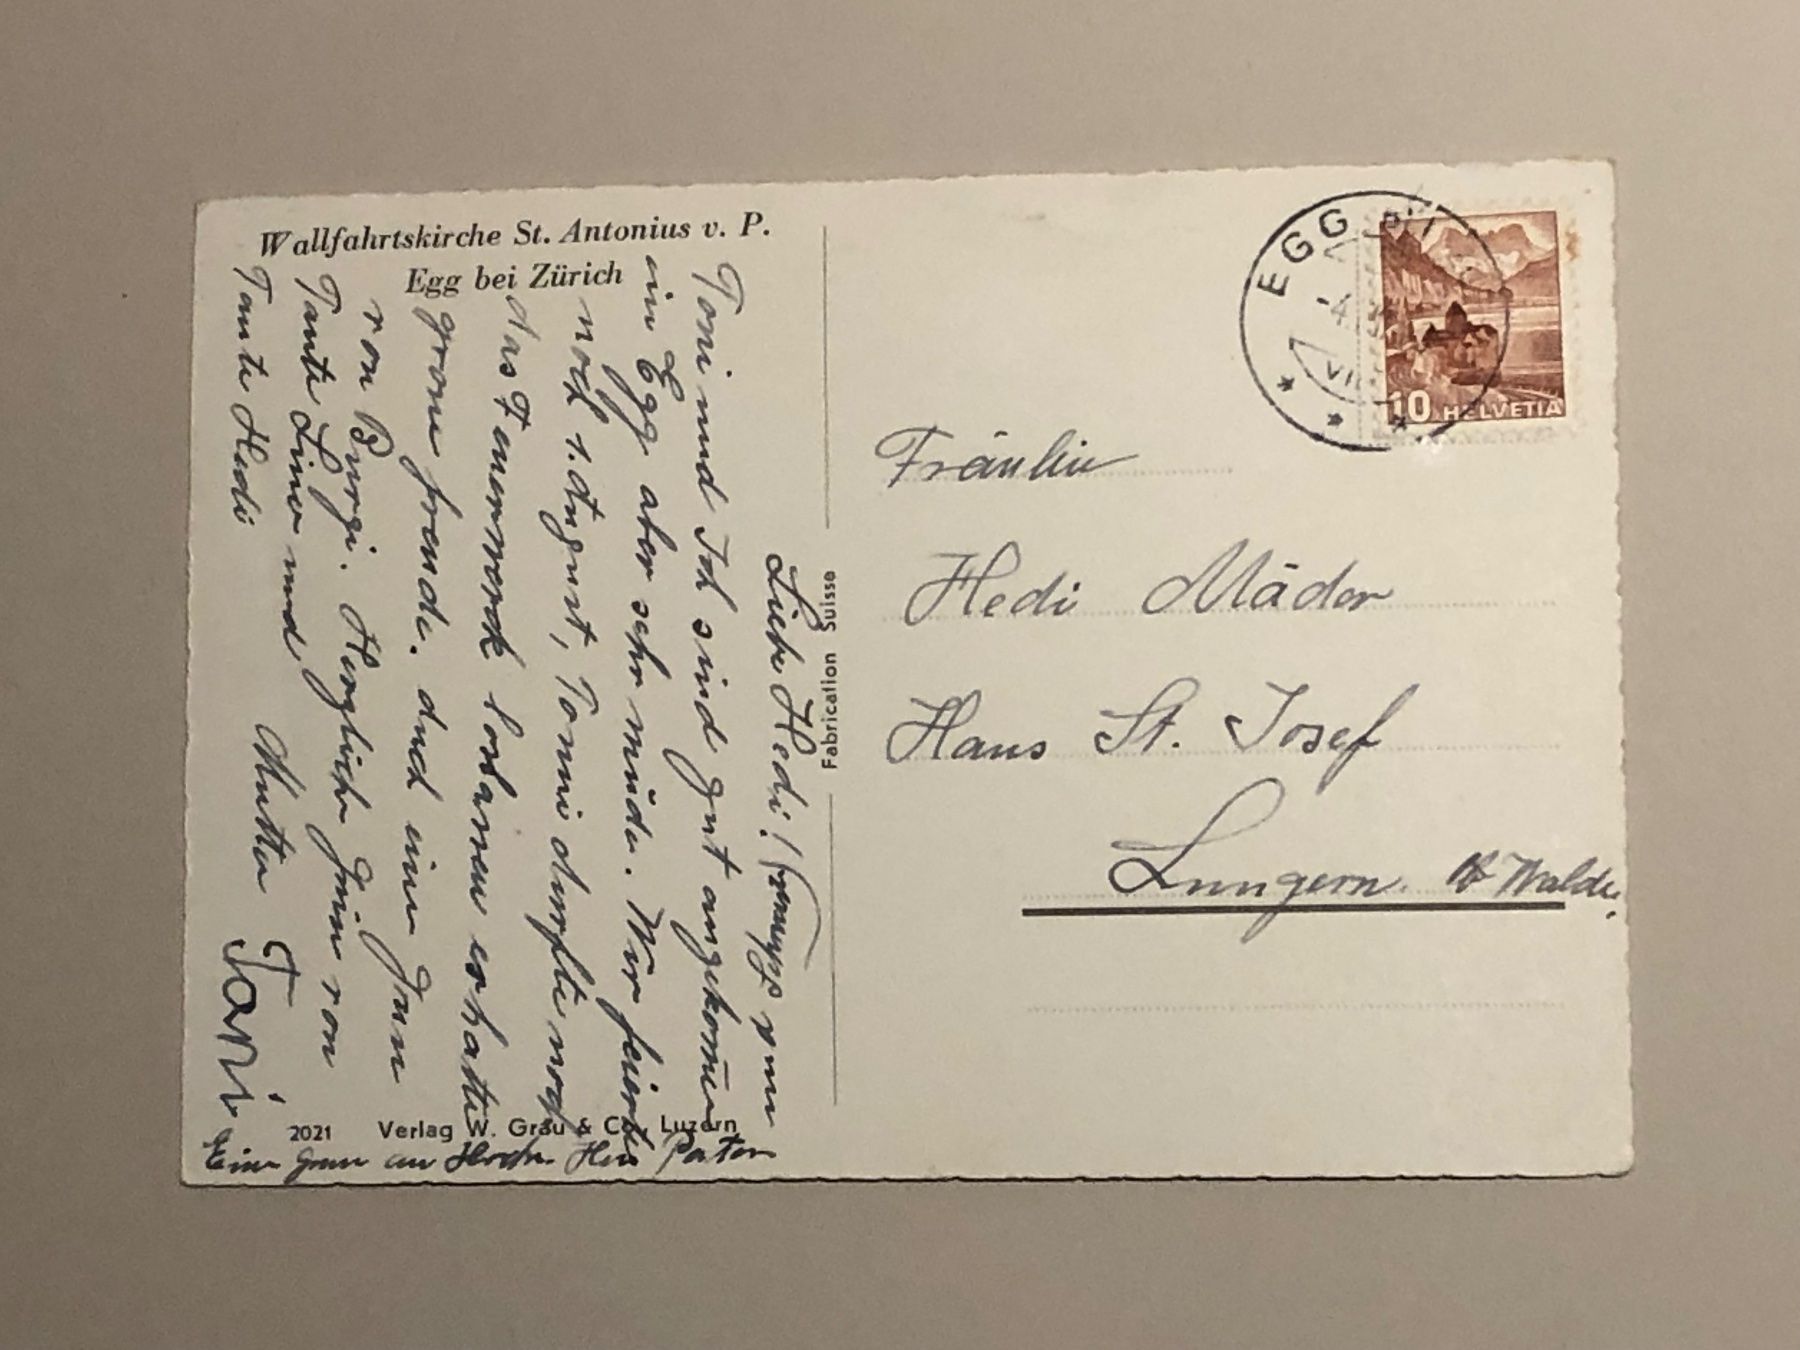 Wallfahrtskirche St. Antonius v. P.
Egg bei Zürich
EGG
4.
VII
10 HELVETIA
Fabrication Suisse
Liebe Hedi!
Toni und Ich sind gut angekom̅en
in Egg aber sehr müde. Wir feierte
noch 1. August, Tonni durfte noch
das Feuerwerk loslassen er hatte
grosse freude. Auch ein Gruss
von Bürgi. Herzliche Grüsse von
Tante Lina und
Tante Hedi Mutter Toni
2021 Verlag W. Grau & Co., Luzern
Eine Gruss an Hochw. Herr Pater
Fräulein
Hedi Mäder
Haus St. Josef
Lungern Walde.